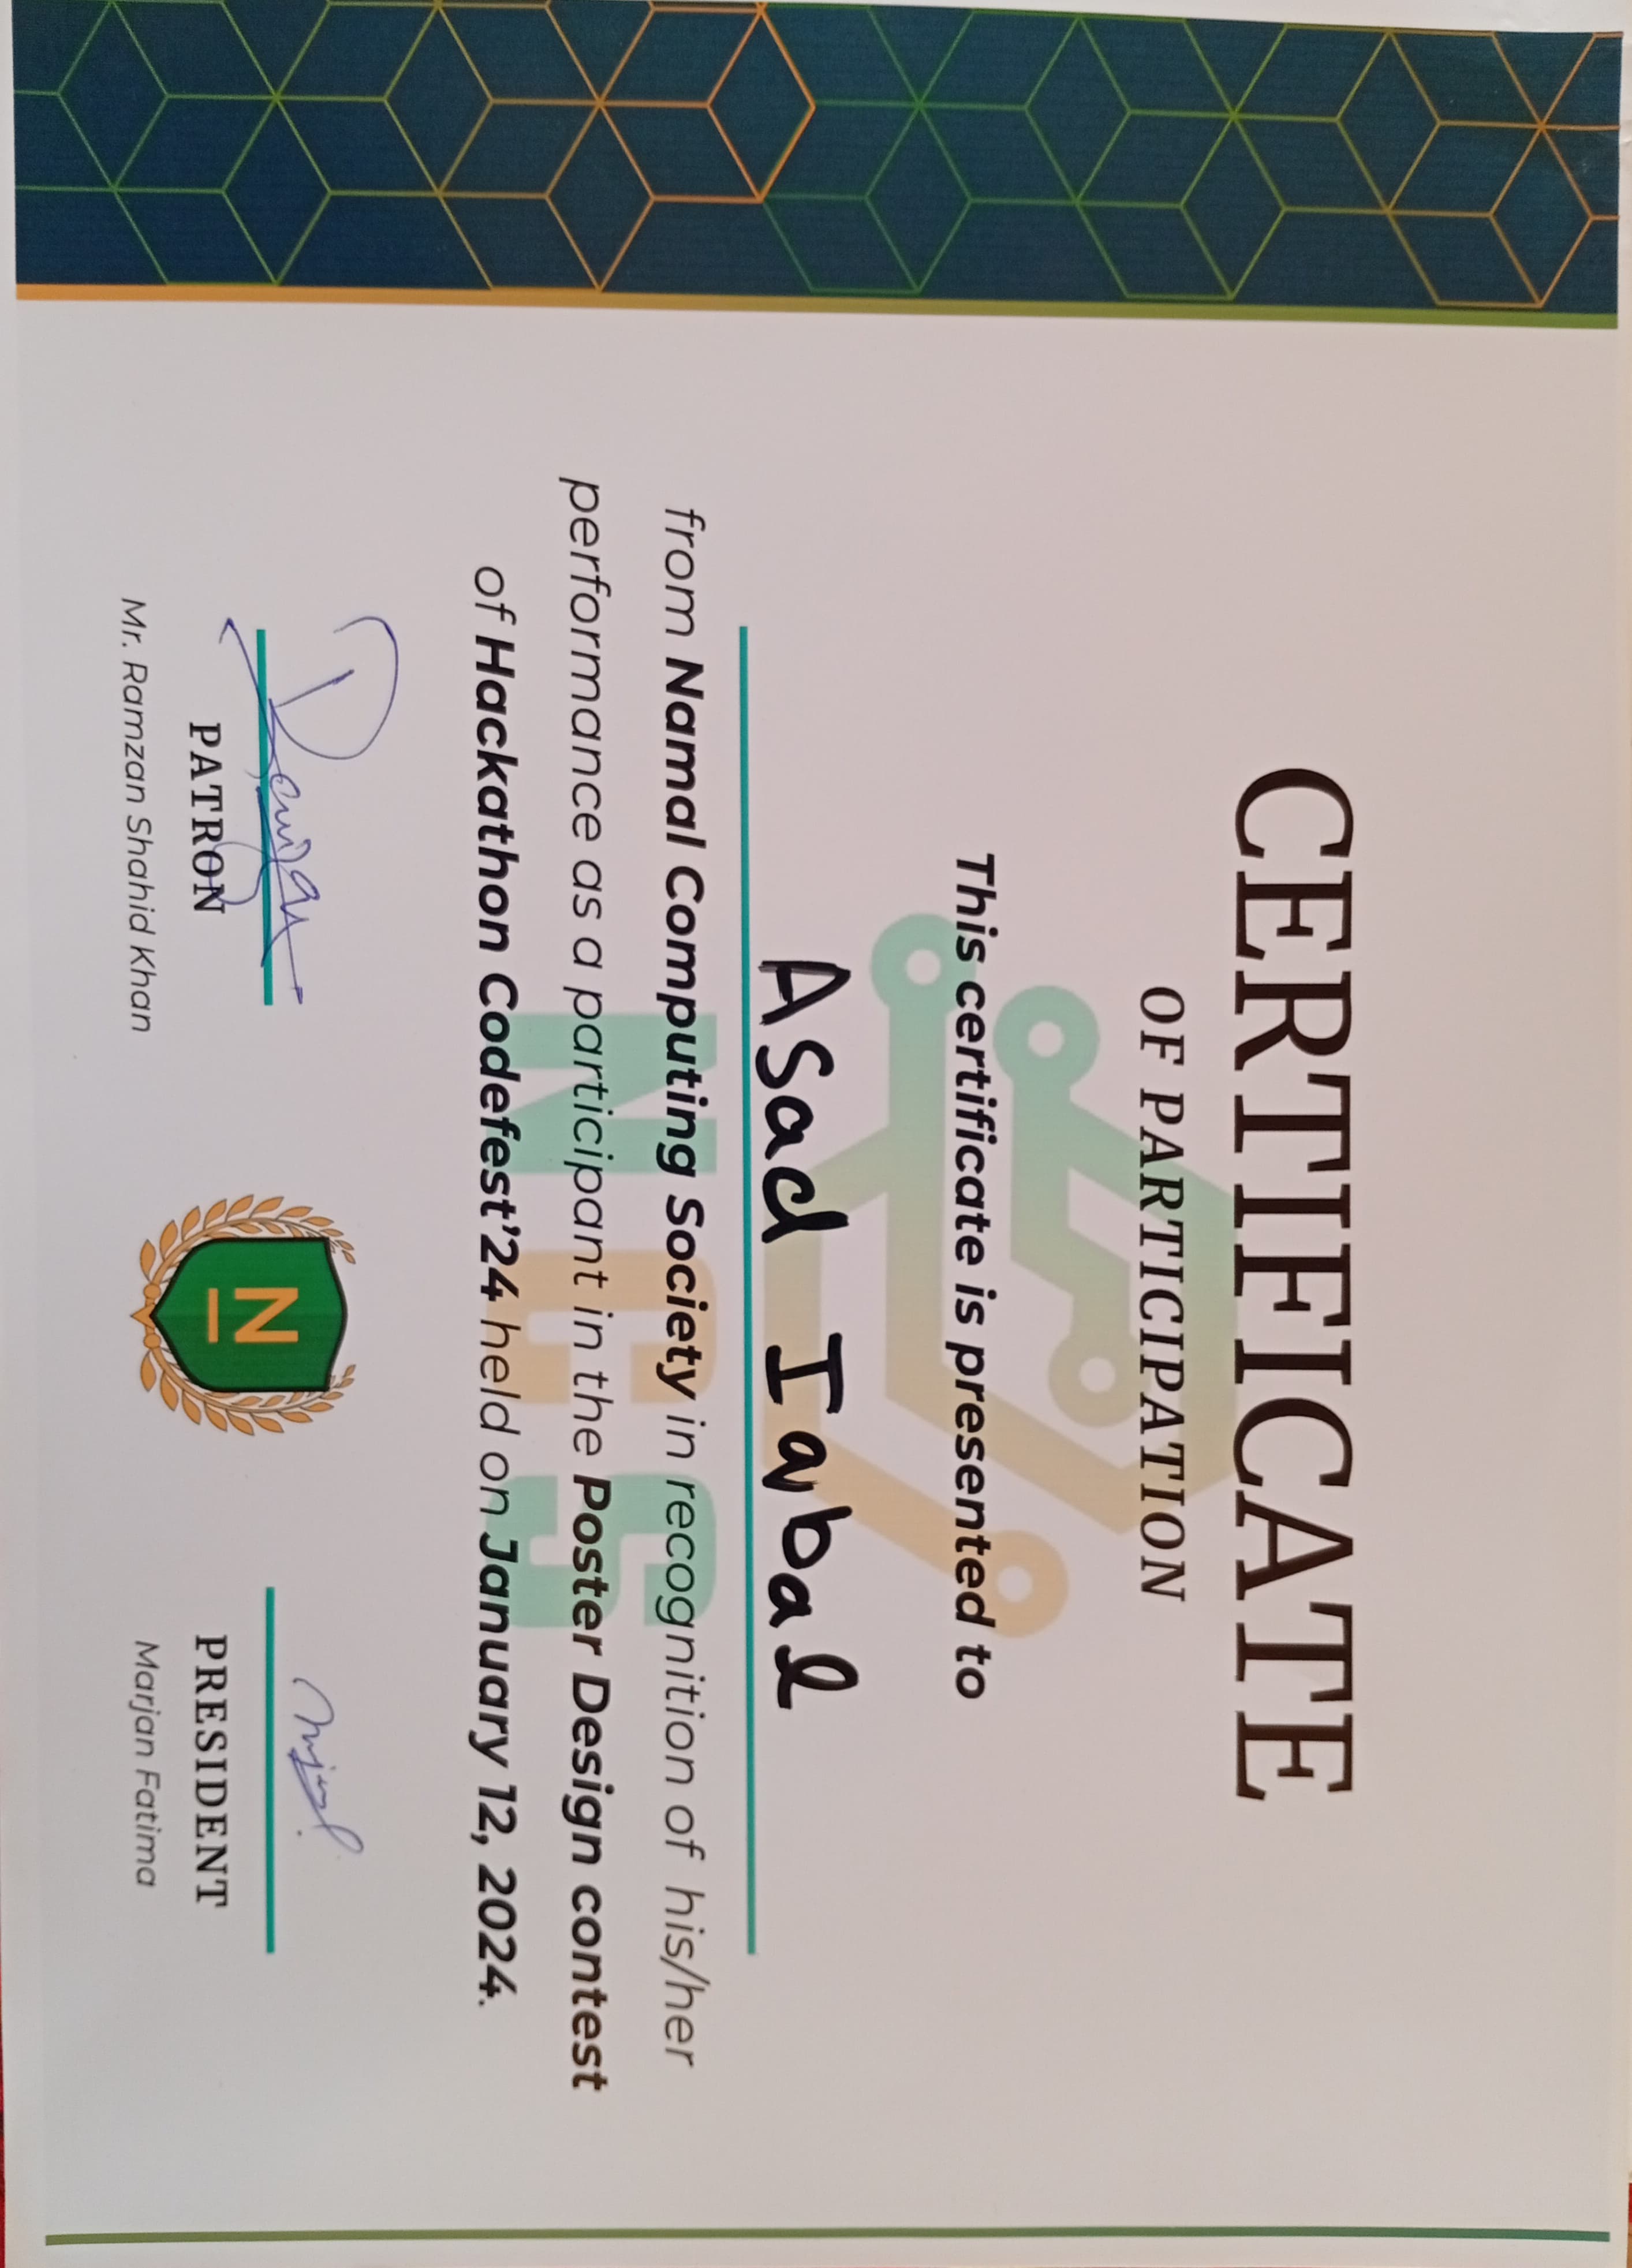 CERTIFICATE
OF PARTICIPATION
This certificate is presented to
Asad Iqbal
from Namal Computing Society in recognition of his/her
performance as a participant in the Poster Design contest
of Hackathon Codefest’24 held on January 12, 2024.
NCS
N
PATRON
Mr. Ramzan Shahid Khan
PRESIDENT
Marjan Fatima